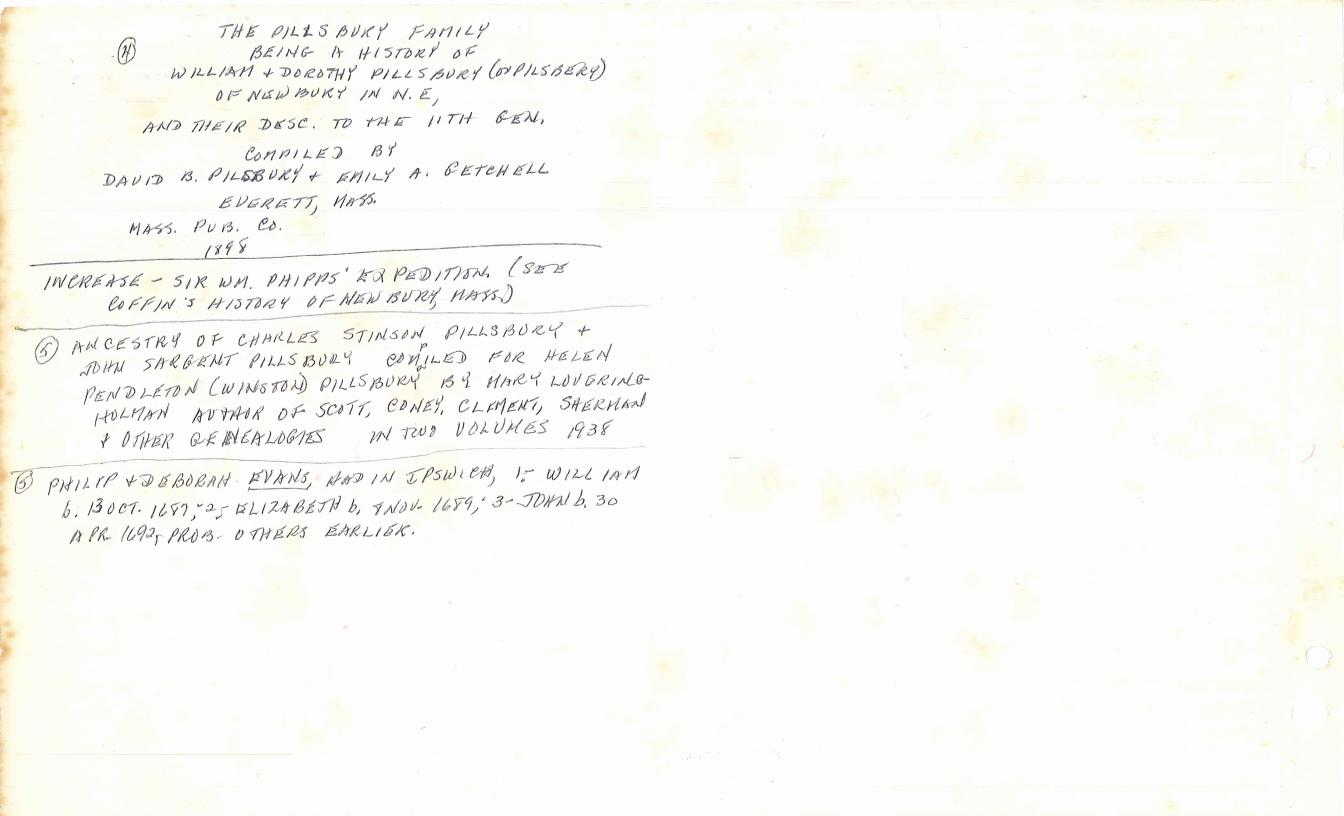 THE PILLSBURY FAMILY
④ BEING A HISTORY OF
WILLIAM + DOROTHY PILLSBURY (or PILSBERY)
OF NEWBURY IN N.E,
AND THEIR DESC. TO THE 11TH GEN.
COMPILED BY
DAVID B. PILSBURY + EMILY A. GETCHELL
EVERETT, MASS.
MASS. PUB. CO.
1898
INCREASE - SIR WM. PHIPPS' EXPEDITION. (SEE
COFFIN'S HISTORY OF NEWBURY, MASS.)
⑤ ANCESTRY OF CHARLES STINSON PILLSBURY +
JOHN SARGENT PILLSBURY COMPILED FOR HELEN
PENDLETON (WINSTON) PILLSBURY BY MARY LOVERING-
HOLMAN AUTHOR OF SCOTT, CONEY, CLEMENT, SHERMAN
+ OTHER GENEALOGIES IN TWO VOLUMES 1938
⑤ PHILIP + DEBORAH EVANS, HAD IN IPSWICH, 1- WILLIAM
b. 13 OCT. 1687; 2- ELIZABETH b. 8 NOV. 1689; 3- JOHN b. 30
APR. 1692, PROB. OTHERS EARLIER.